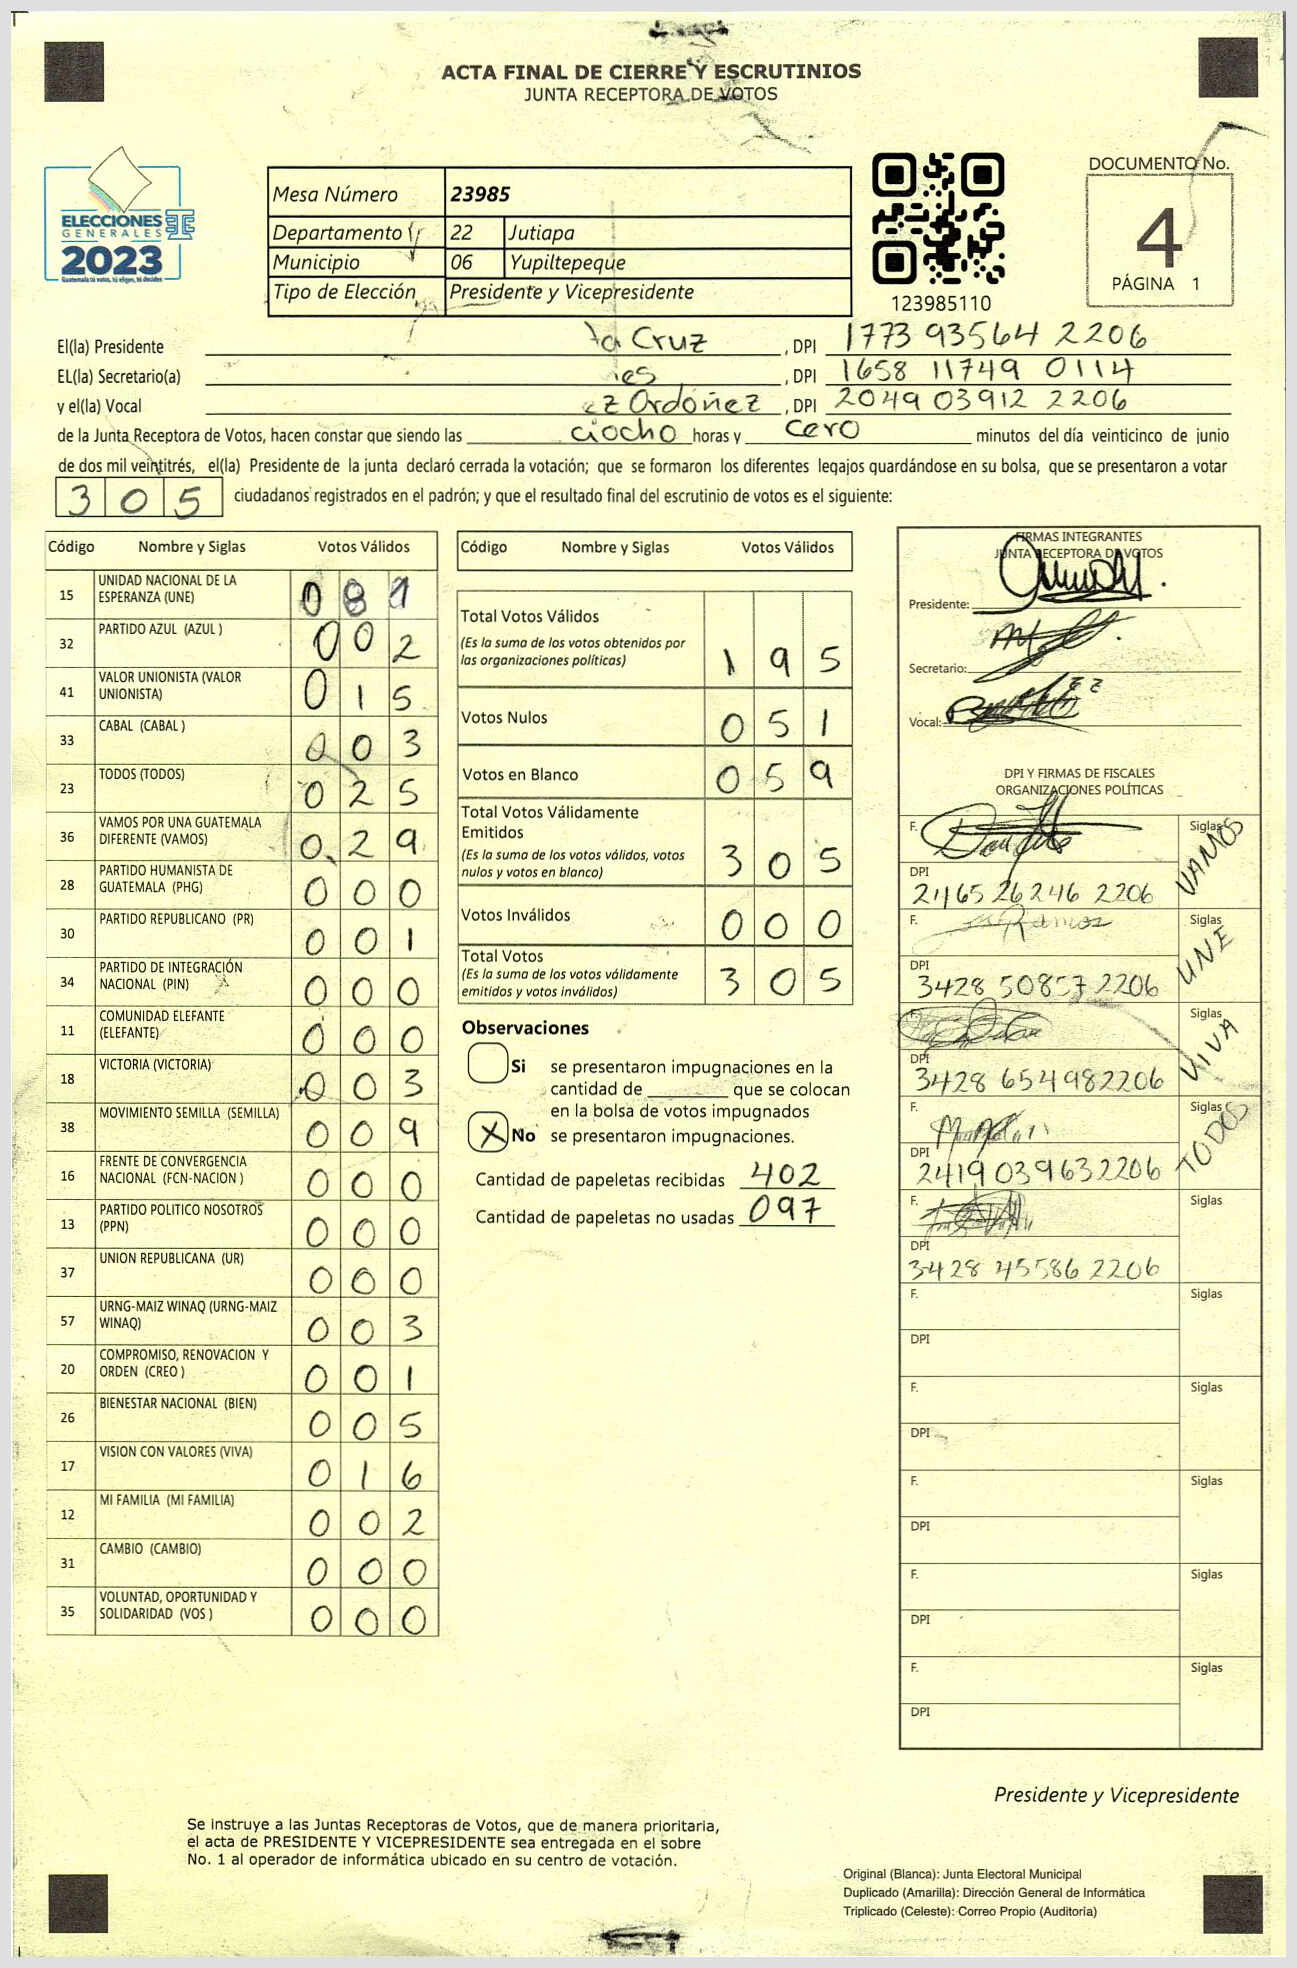 ACTA FINAL DE CIERRE Y ESCRUTINIOS
JUNTA RECEPTORA DE VOTOS
ELECCIONES
GENERALES
2023
Guatemala tú votas, tú eliges, tú decides
Mesa Número 23985
Departamento 22 Jutiapa
Municipio 06 Yupiltepeque
Tipo de Elección Presidente y Vicepresidente
123985110
DOCUMENTO No.
4
PÁGINA 1
El(la) Presidente Cruz , DPI 1773 93564 2206
EL(la) Secretario(a) , DPI 1658 11749 0114
y el(la) Vocal ez Ordoñez , DPI 2049 03912 2206
de la Junta Receptora de Votos, hacen constar que siendo las ciocho horas y cero minutos del día veinticinco de junio
de dos mil veintitrés, el(la) Presidente de la junta declaró cerrada la votación; que se formaron los diferentes legajos guardándose en su bolsa, que se presentaron a votar
305 ciudadanos registrados en el padrón; y que el resultado final del escrutinio de votos es el siguiente:
Código Nombre y Siglas Votos Válidos
15 UNIDAD NACIONAL DE LA ESPERANZA (UNE) 081
32 PARTIDO AZUL (AZUL ) 002
41 VALOR UNIONISTA (VALOR UNIONISTA) 015
33 CABAL (CABAL ) 003
23 TODOS (TODOS) 025
36 VAMOS POR UNA GUATEMALA DIFERENTE (VAMOS) 029
28 PARTIDO HUMANISTA DE GUATEMALA (PHG) 000
30 PARTIDO REPUBLICANO (PR) 001
34 PARTIDO DE INTEGRACIÓN NACIONAL (PIN) 000
11 COMUNIDAD ELEFANTE (ELEFANTE) 000
18 VICTORIA (VICTORIA) 003
38 MOVIMIENTO SEMILLA (SEMILLA) 009
16 FRENTE DE CONVERGENCIA NACIONAL (FCN-NACION ) 000
13 PARTIDO POLITICO NOSOTROS (PPN) 000
37 UNION REPUBLICANA (UR) 000
57 URNG-MAIZ WINAQ (URNG-MAIZ WINAQ) 003
20 COMPROMISO, RENOVACION Y ORDEN (CREO ) 001
26 BIENESTAR NACIONAL (BIEN) 005
17 VISION CON VALORES (VIVA) 016
12 MI FAMILIA (MI FAMILIA) 002
31 CAMBIO (CAMBIO) 000
35 VOLUNTAD, OPORTUNIDAD Y SOLIDARIDAD (VOS ) 000
Código Nombre y Siglas Votos Válidos
Total Votos Válidos 195
(Es la suma de los votos obtenidos por
las organizaciones políticas)
Votos Nulos 051
Votos en Blanco 059
Total Votos Válidamente
Emitidos 305
(Es la suma de los votos válidos, votos
nulos y votos en blanco)
Votos Inválidos 000
Total Votos 305
(Es la suma de los votos válidamente
emitidos y votos inválidos)
Observaciones
Si se presentaron impugnaciones en la
cantidad de ________ que se colocan
en la bolsa de votos impugnados
X No se presentaron impugnaciones.
Cantidad de papeletas recibidas 402
Cantidad de papeletas no usadas 097
FIRMAS INTEGRANTES
JUNTA RECEPTORA DE VOTOS
Presidente:
Secretario:
Vocal:
DPI Y FIRMAS DE FISCALES
ORGANIZACIONES POLÍTICAS
F. Siglas VAMOS
DPI
2465 26246 2206
F. Ramos Siglas UNE
DPI
3428 50857 2206
F. Siglas VIVA
DPI
3428 65498 2206
F. Siglas TODOS
DPI
2419 03963 2206
F. Siglas
DPI
3428 45586 2206
F. Siglas
DPI
F. Siglas
DPI
F. Siglas
DPI
F. Siglas
DPI
F. Siglas
DPI
Presidente y Vicepresidente
Se instruye a las Juntas Receptoras de Votos, que de manera prioritaria,
el acta de PRESIDENTE Y VICEPRESIDENTE sea entregada en el sobre
No. 1 al operador de informática ubicado en su centro de votación.
Original (Blanca): Junta Electoral Municipal
Duplicado (Amarilla): Dirección General de Informática
Triplicado (Celeste): Correo Propio (Auditoría)